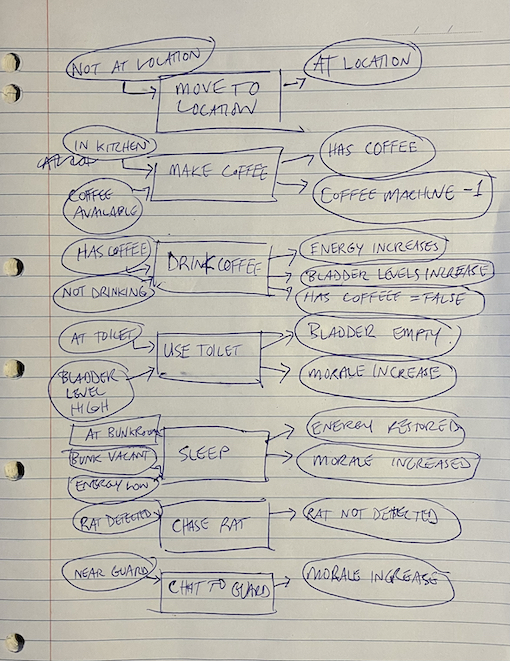 NOT AT LOCATION
MOVE TO
LOCATION
AT LOCATION
IN KITCHEN
COFFEE
AVAILABLE
MAKE COFFEE
HAS COFFEE
COFFEE MACHINE -1
HAS COFFEE
NOT DRINKING
DRINK COFFEE
ENERGY INCREASES
BLADDER LEVELS INCREASE
HAS COFFEEE = FALSE
AT TOILET
BLADDER
LEVEL
HIGH
USE TOILET
BLADDER EMPTY.
MORALE INCREASE
AT BUNKROOM
BUNK VACANT
ENERGY LOW
SLEEP
ENERGY RESTORED
MORALE INCREASED
RAT DETECTED
CHASE RAT
RAT NOT DETECTED
NEAR GUARD
CHAT TO GUARD
MORALE INCREASE